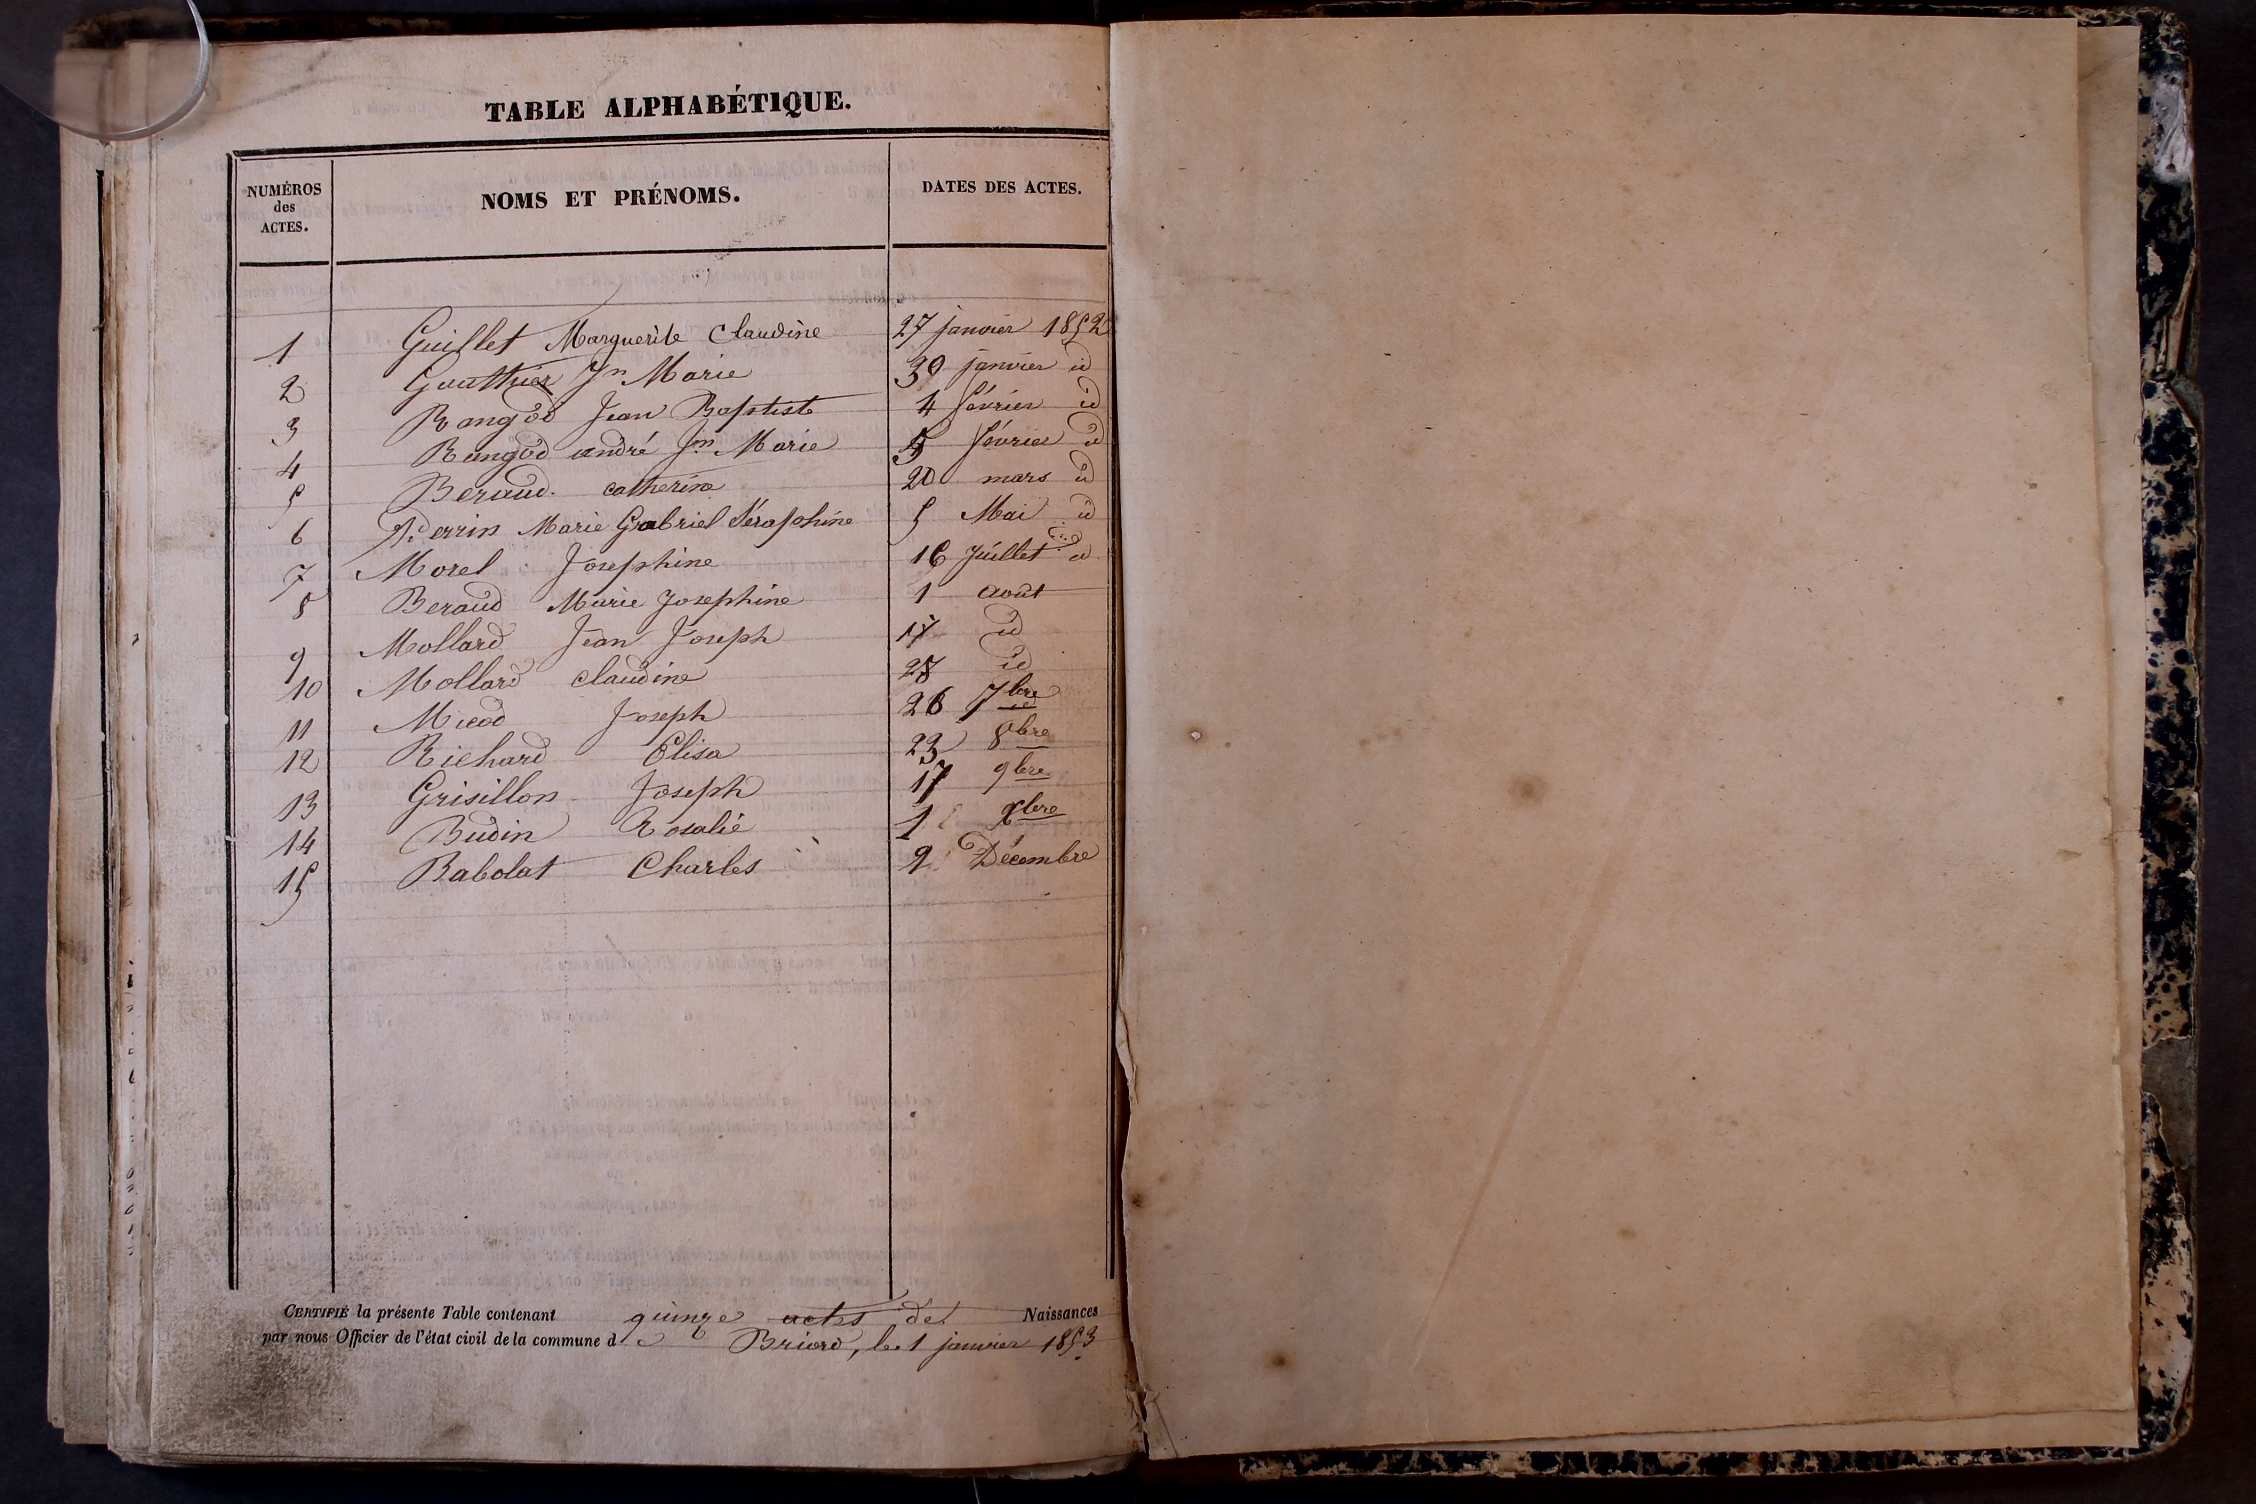 TABLE ALPHABÉTIQUE.
NUMÉROS des ACTES. NOMS ET PRÉNOMS. DATES DES ACTES.
1 Guillet Marguerite Claudine 27 janvier 1852
2 Gauthier Jn Marie 30 janvier id
3 Rangod Jean Baptiste 4 février id
4 Rangod andré Jn Marie 5 février id
5 Beraud catherine 20 mars id
6 Perrin Marie Gabriel Séraphine 5 Mai id
7 Morel Josephine 16 Juillet id
8 Beraud Marie Josephine 1 août
9 Mollard Jean Joseph 17 id
10 Mollard Claudine 28 id
11 Micod Joseph 26 7bre
12 Richard Elisa 23 8bre
13 Grisillon Joseph 17 9bre
14 Budin Rosalie 1 Xbre
15 Babolat Charles 2 Décembre
CERTIFIÉ la présente Table contenant quinze actes de Naissances
par nous Officier de l'état civil de la commune de Briord, le 1 janvier 1853